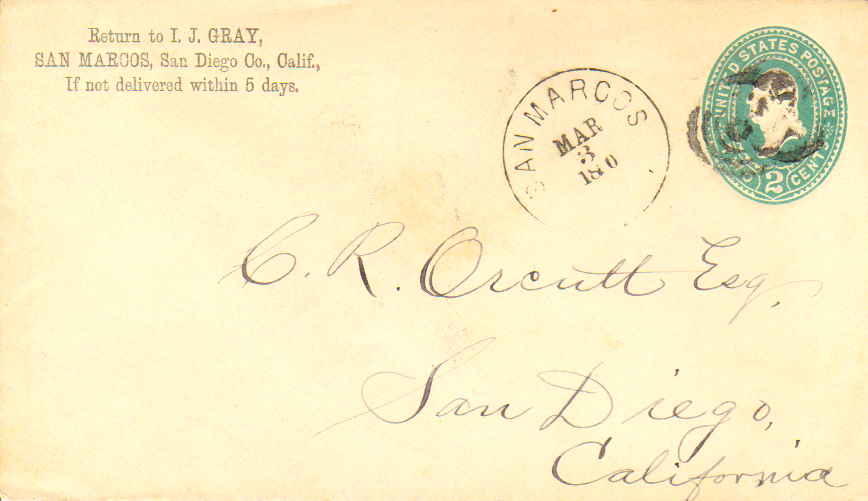 Return to I. J. GRAY,
SAN MARCOS, San Diego Co., Calif.,
If not delivered within 5 days.
SAN MARCOS
MAR
3
UNITED STATES POSTAGE
2 CENTS
C. R. Orcutt Esq,
San Diego,
California